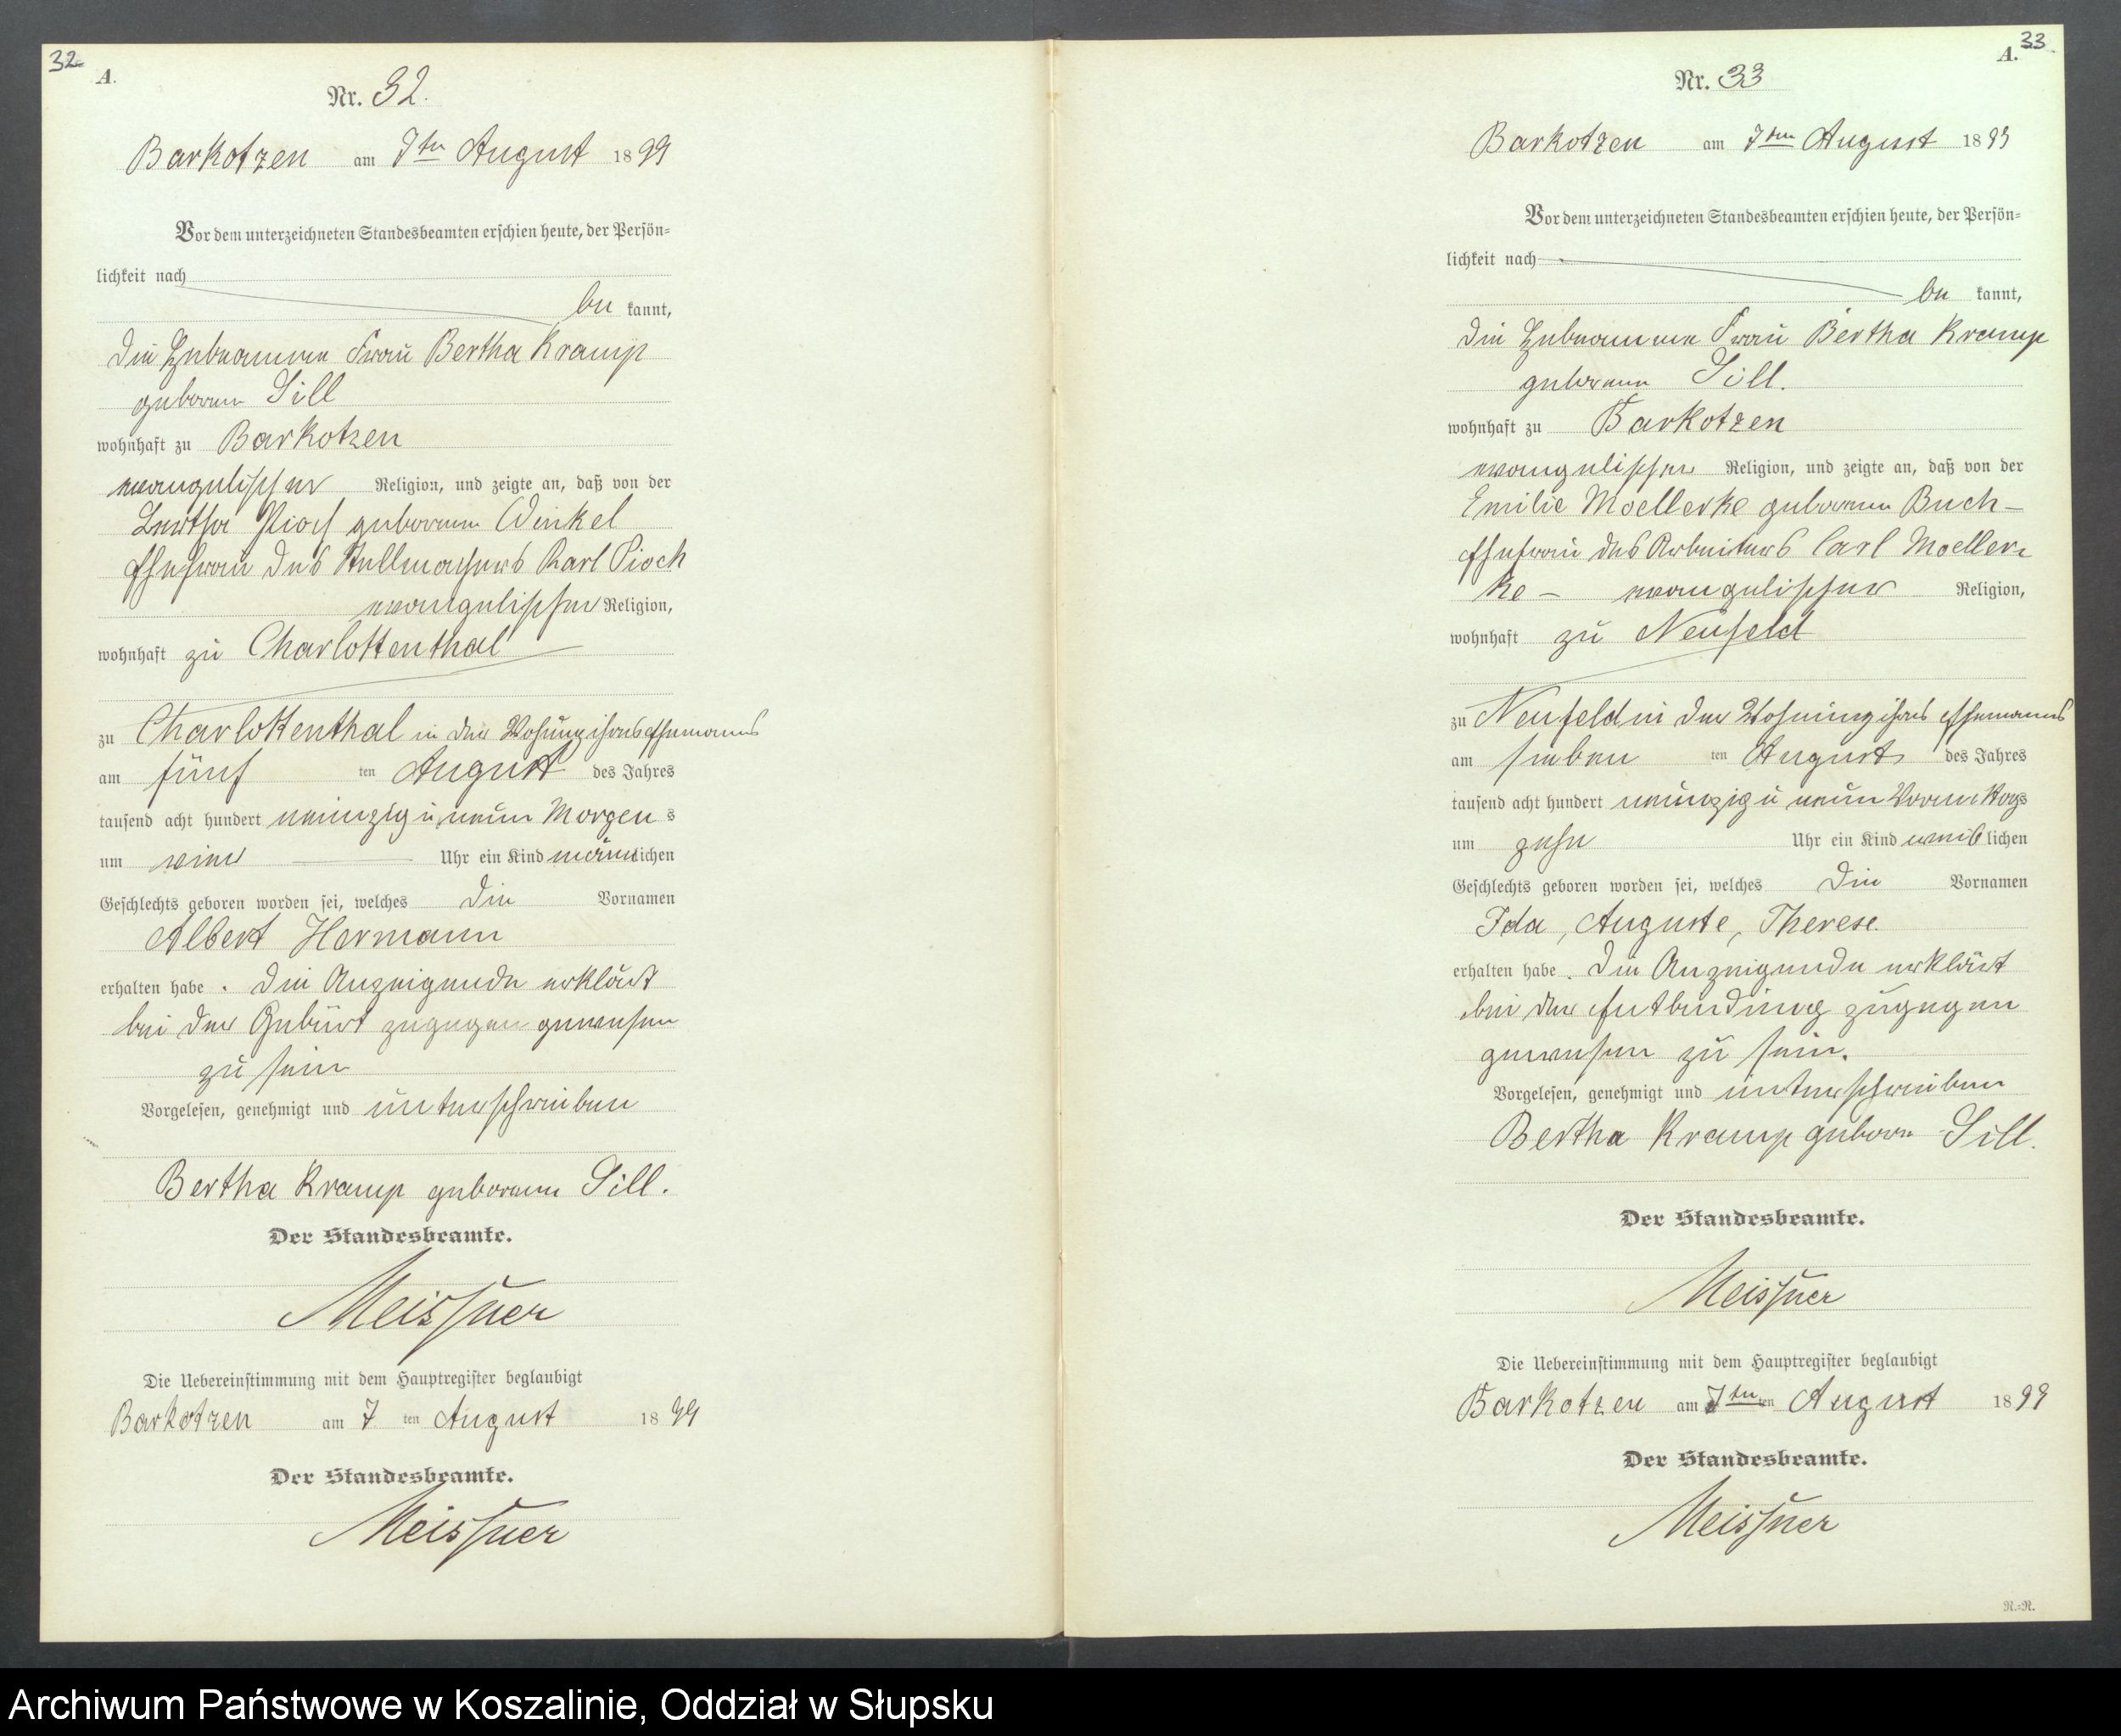 32
A.
Nr. 32.
Barkotzen am 7ten August 1899
Vor dem unterzeichneten Standesbeamten erschien heute, der Persön-
lichkeit nach
be kannt,
die Hebeamme Frau Bertha Kramp
geborene Sill
wohnhaft zu Barkotzen
evangelischer Religion, und zeigte an, daß von der
Bertha Pioch geborene Winkel
Ehefrau des Stellmachers Karl Pioch
evangelischer Religion,
wohnhaft zu Charlottenthal
zu Charlottenthal in der Wohung ihres Ehemannes
am fünf ten August des Jahres
tausend acht hundert neunzig u neun Morgen s
um eine Uhr ein Kind männlichen
Geschlechts geboren worden sei, welches die Vornamen
Albert Hermann
erhalten habe. Die Anzeigende erklärt
bei der Geburt zugegen gewesen
zu sein
Vorgelesen, genehmigt und unterschrieben
Bertha Kramp geborene Sill.
Der Standesbeamte.
Meissner
Die Uebereinstimmung mit dem Hauptregister beglaubigt
Barkotzen am 7 ten August 1899
Der Standesbeamte.
Meissner
33
A.
Nr. 33
Barkotzen am 7ten August 1899
Vor dem unterzeichneten Standesbeamten erschien heute, der Persön-
lichkeit nach
be kannt,
die Hebeamme Frau Bertha Kramp
geborene Sill.
wohnhaft zu Barkotzen
evangelischer Religion, und zeigte an, daß von der
Emilie Moellerke geborene Buch-
Ehefrau des Arbeiters Carl Moeller-
ke - evangelischer Religion,
wohnhaft zu Neufeld
zu Neufeld in der Wohnung ihres Ehemannes
am sieben ten August des Jahres
tausend acht hundert neunzig u neun Vormittags
um zehn Uhr ein Kind weiblichen
Geschlechts geboren worden sei, welches die Vornamen
Ida, Auguste, Therese.
erhalten habe. Die Anzeigende erklärt
bei der Entbindung zugegen
gewesen zu sein.
Vorgelesen, genehmigt und unterschrieben
Bertha Kramp geborn Sill.
Der Standesbeamte.
Meissner
Die Uebereinstimmung mit dem Hauptregister beglaubigt
Barkotzen am 7ten August 1899
Der Standesbeamte.
Meissner
R.=R.
Archiwum Państwowe w Koszalinie, Oddział w Słupsku